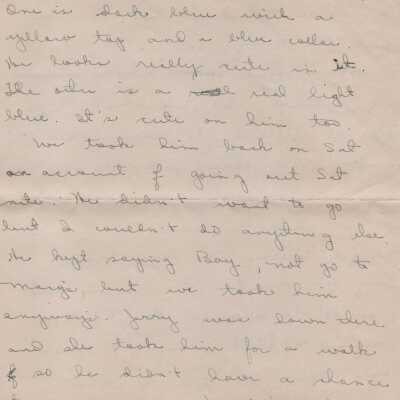 One is dark blue with a
yellow top and a blue collar.
He looks really cute in it.
The other is a real light
blue. It's cute on him too.
We took him back on Sat
on account of going out Sat
nite. He didn't want to go
but I couldn't do anything else.
He kept saying Bay, not go to
Marge, but we took him
anyway. Jerry was down there
and she took him for a walk
so he didn't have a chance